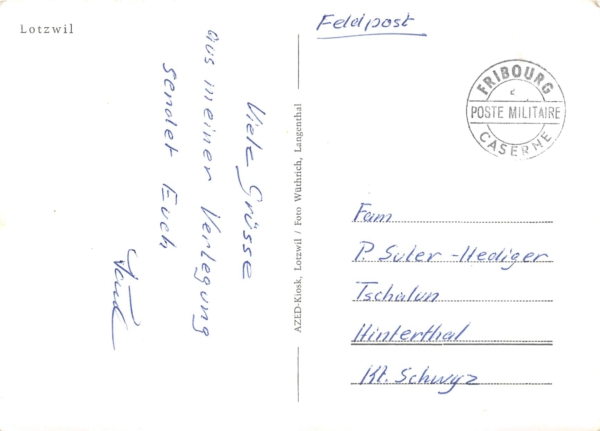 Lotzwil
Viele Grüsse
aus meiner Verlegung
sendet Euch
Paul
AZED-Kiosk, Lotzwil / Foto Wüthrich, Langenthal
Feldpost
FRIBOURG
POSTE MILITAIRE
CASERNE
Fam
P. Suler-Hediger
Tschalun
Hinterthal
Kt. Schwyz